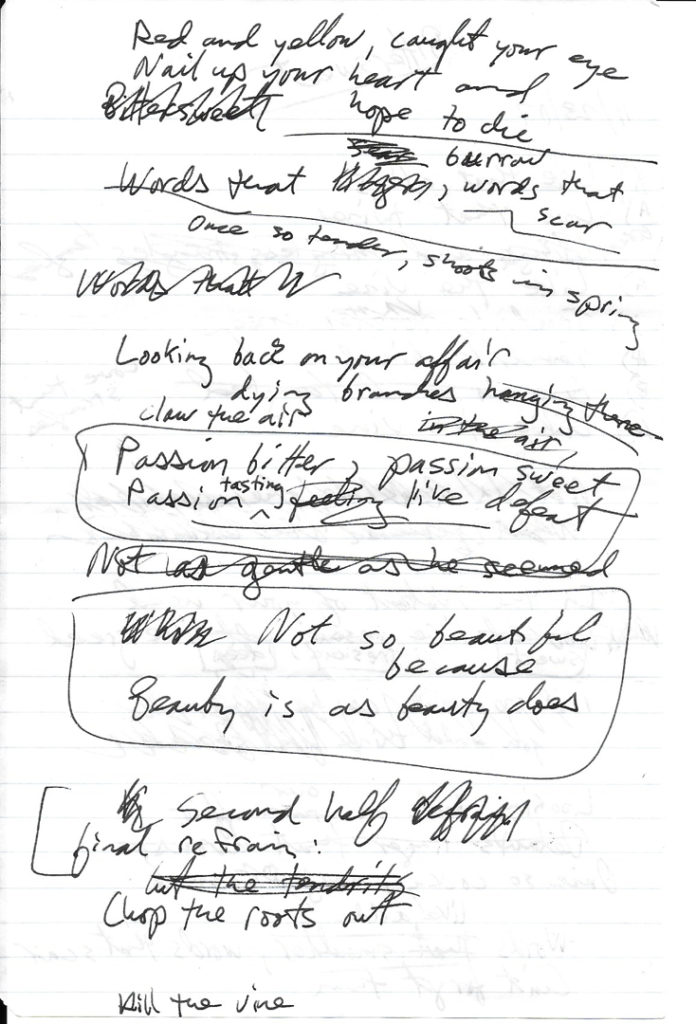 Red and yellow, caught your eye
Nail up your heart and
Bittersweet hope to die
burrow
Words that , words that
scar
Once so tender, shoots in spring
Words that
Looking back on your affair
dying branches hanging there
claw the air in the air
Passion bitter, passion sweet
tasting
Passion ^ feeling like defeat
Not as gentle as he seemed
Not so beautiful
because
Beauty is as beauty does
second half
final refrain:
cut the tendrils
Chop the roots out
Kill the vine